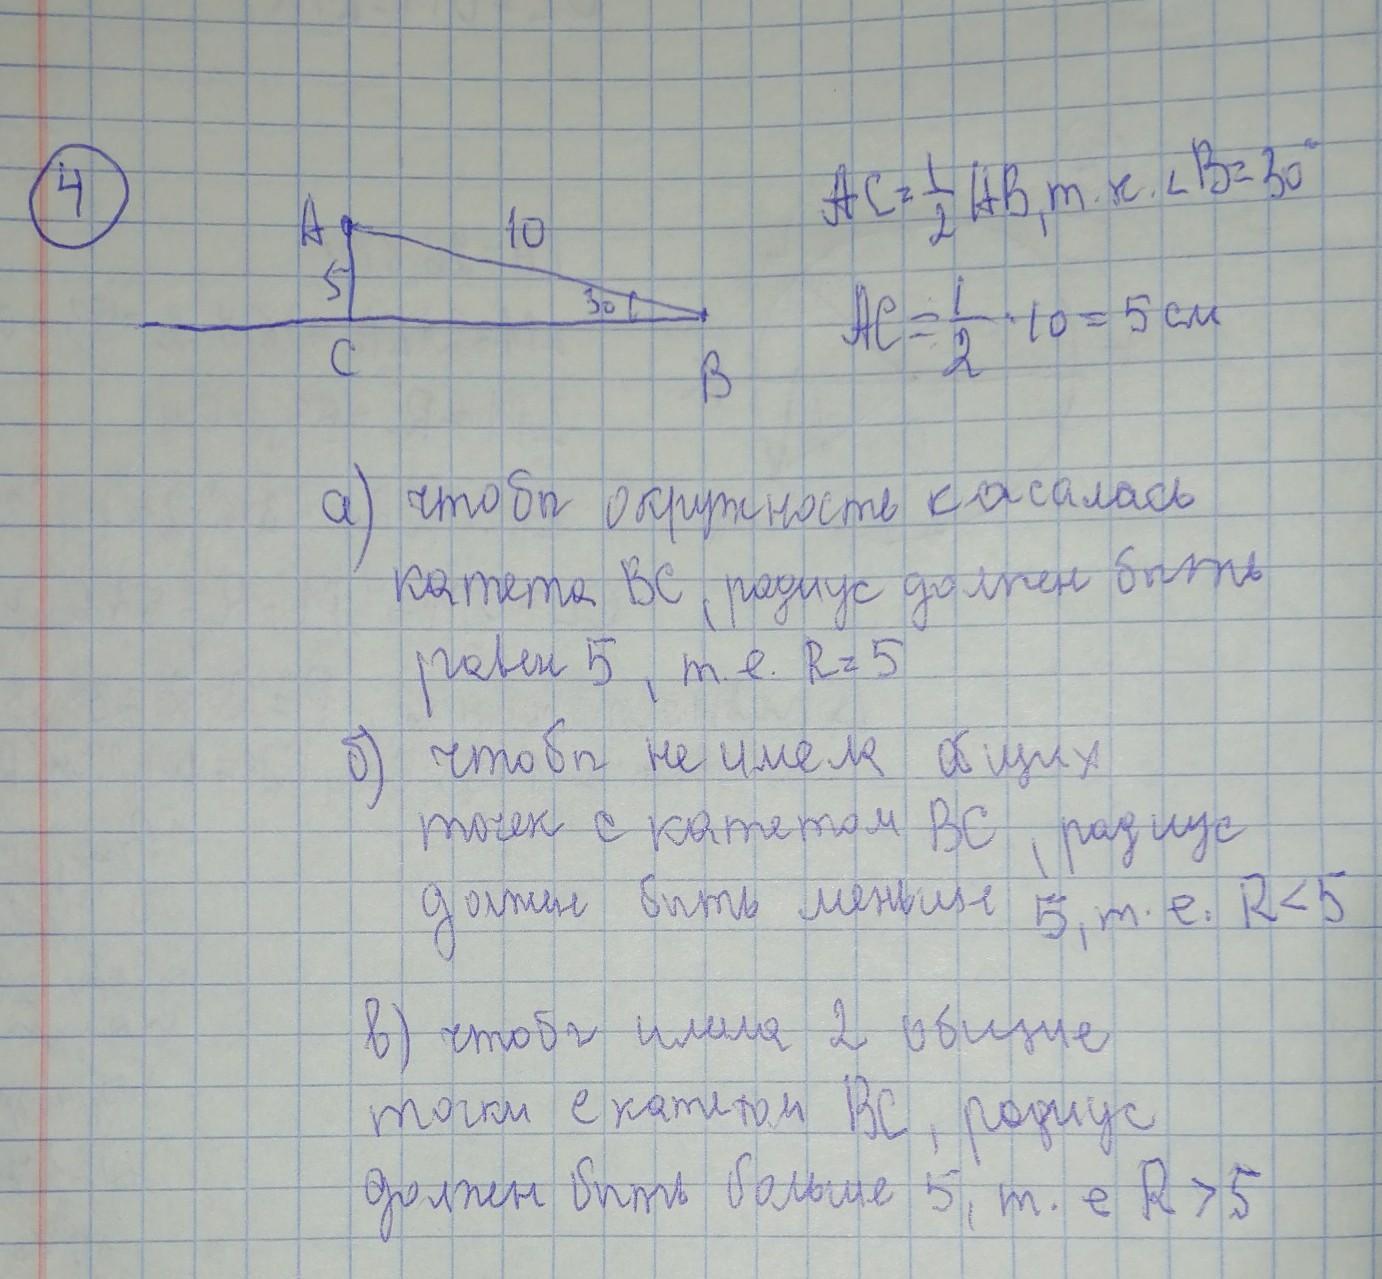 4
A
10
5
30
C
B
AC = 1/2 AB, т.к. ∠B = 30°
AC = 1/2 · 10 = 5 см
а) чтобы окружность касалась
катета BC, радиус должен быть
равен 5, т.е. R = 5
б) чтобы не имела общих
точек с катетом BC, радиус
должен быть меньше 5, т.е. R < 5
в) чтобы имела 2 общие
точки с катетом BC, радиус
должен быть больше 5, т.е R > 5